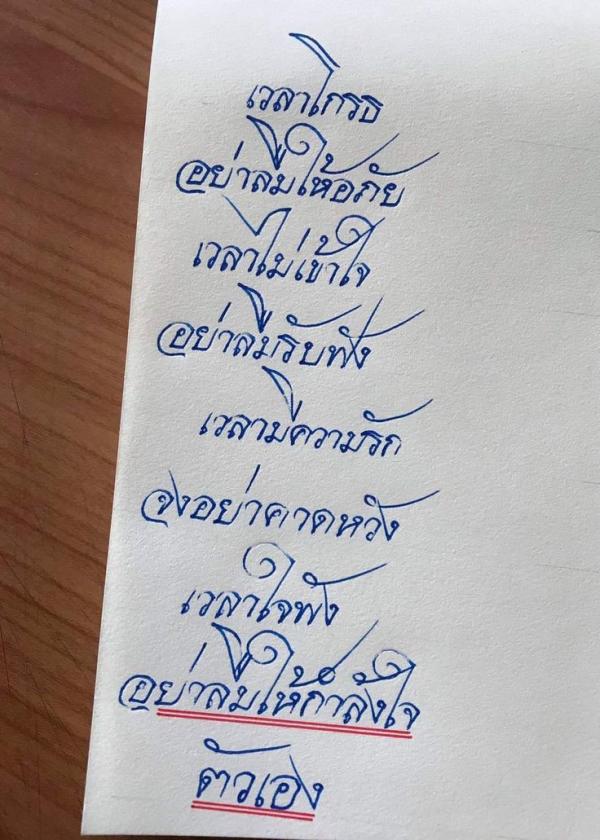 เวลาโกรธ
อย่าลืมให้อภัย
เวลาไม่เข้าใจ
อย่าลืมรับฟัง
เวลามีความรัก
จงอย่าคาดหวัง
เวลาใจพัง
อย่าลืมให้กำลังใจ
ตัวเอง